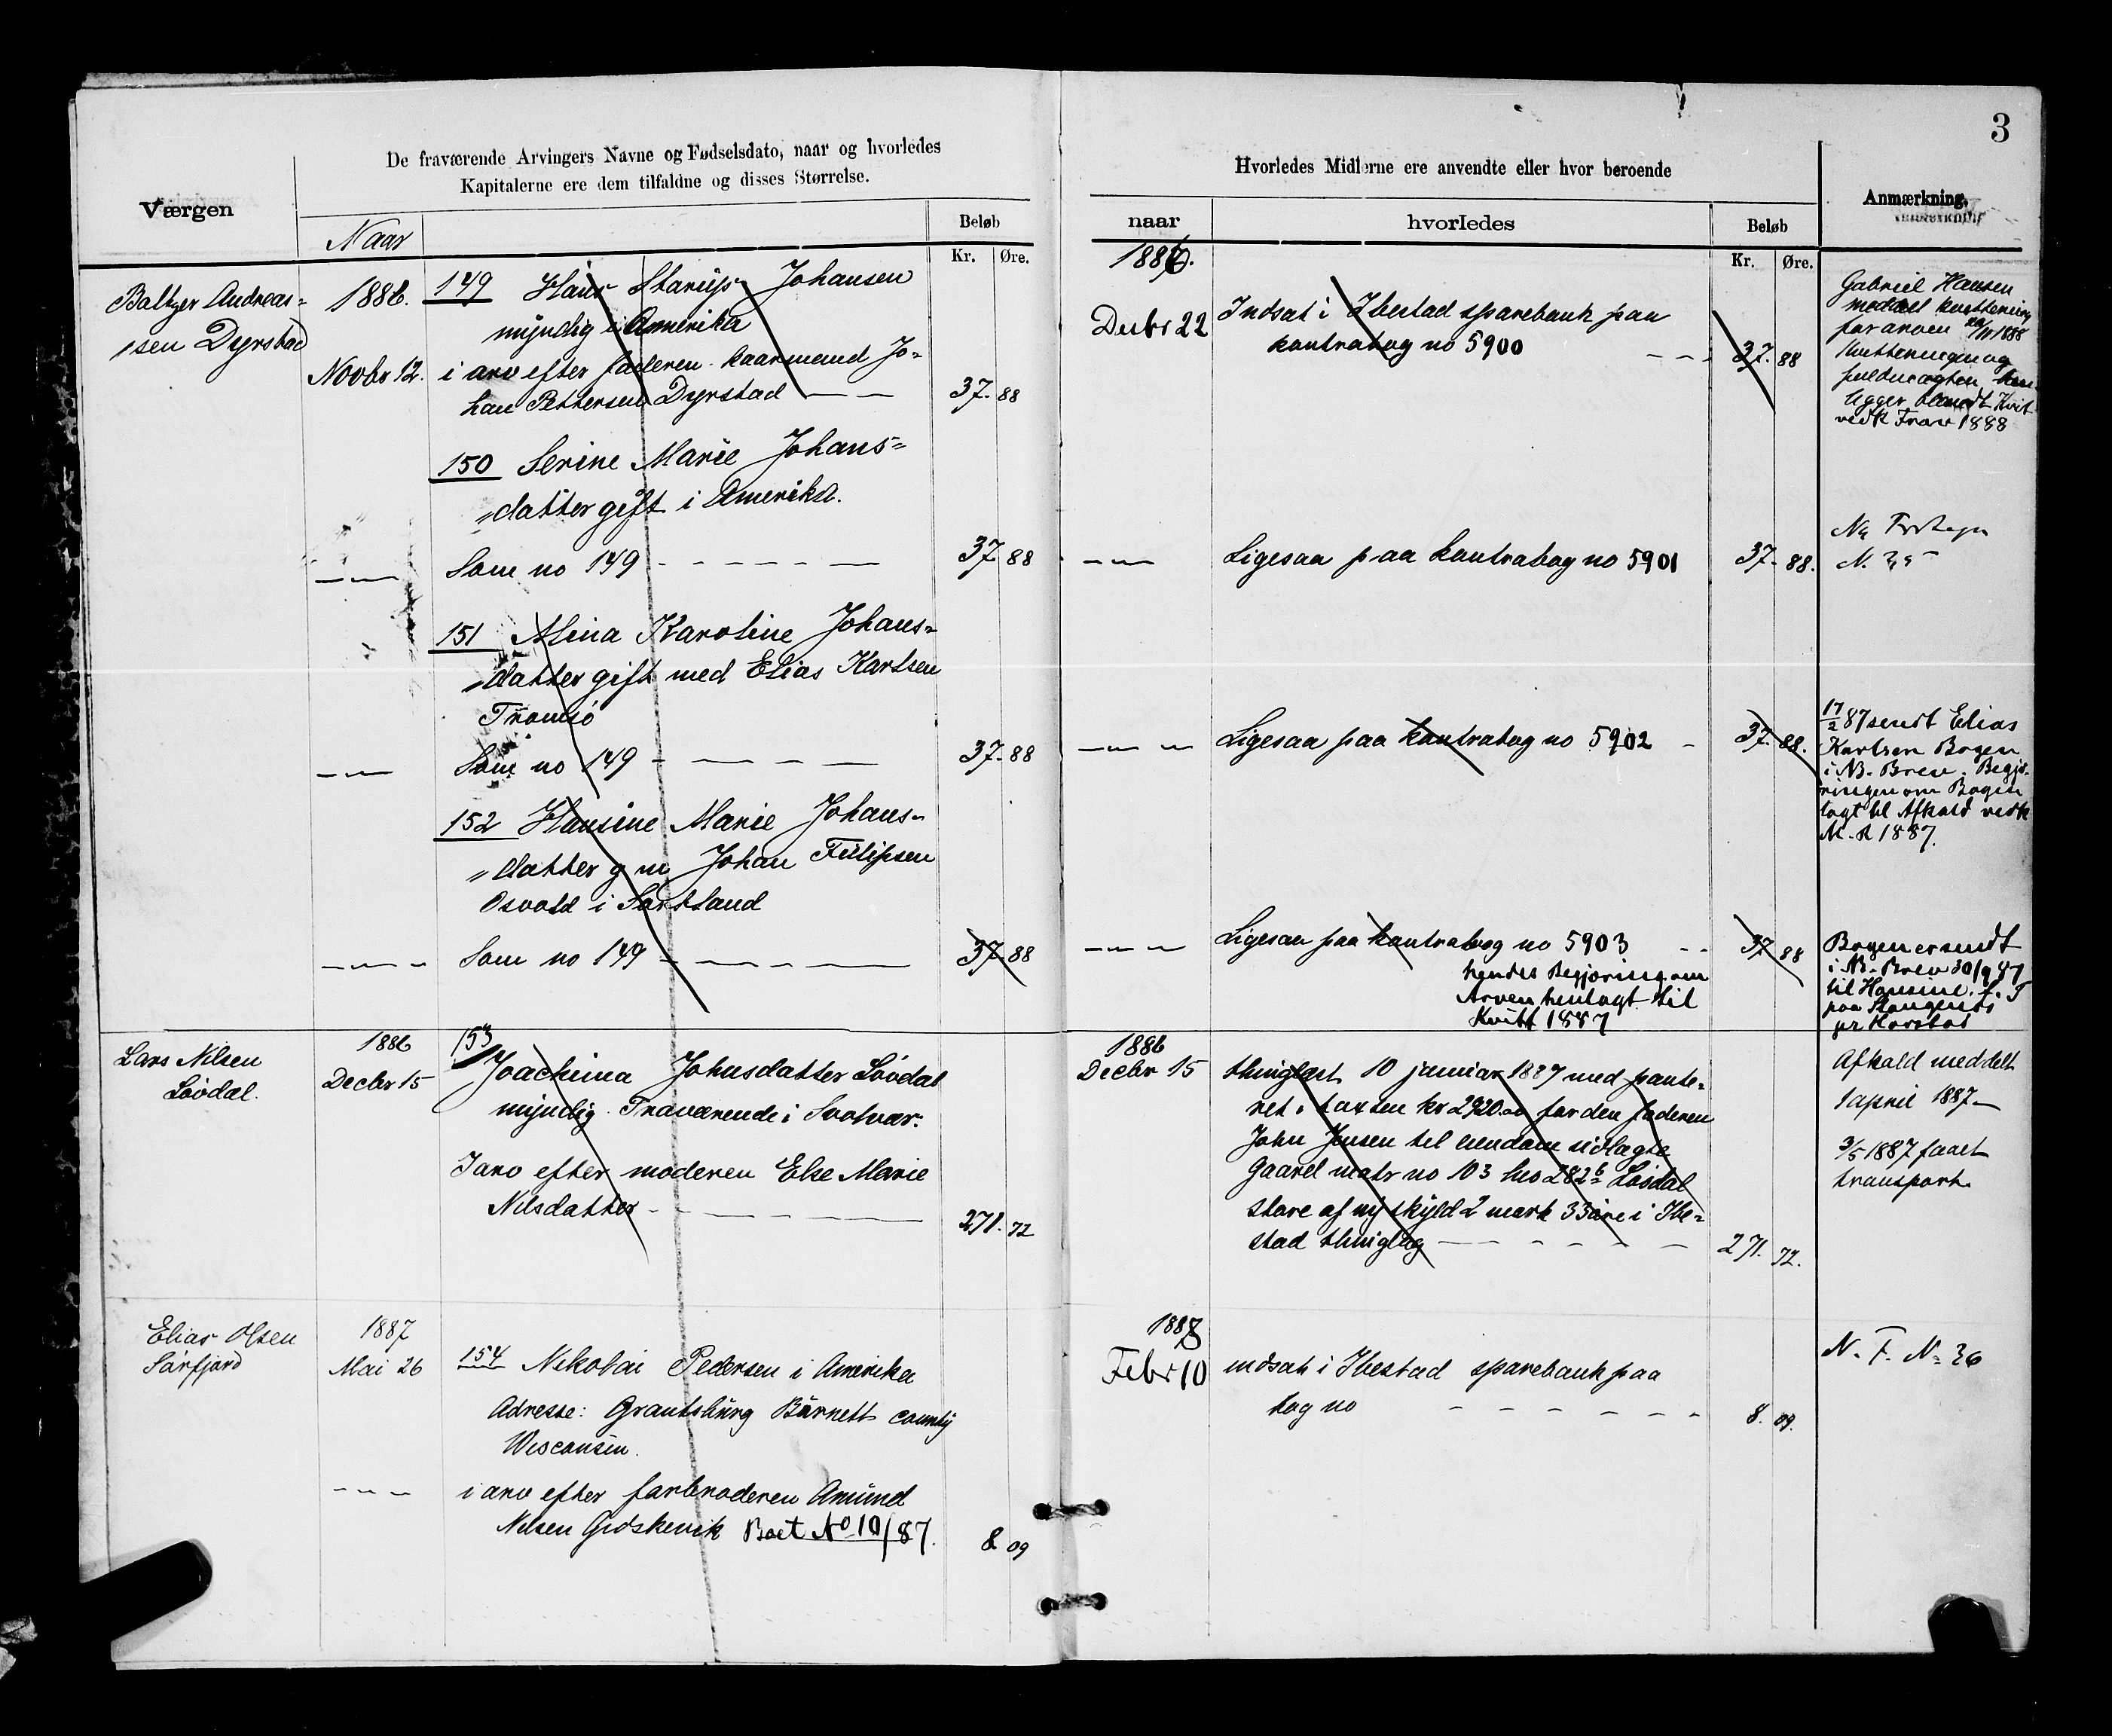 3
De fraværende Arvingers Navne og Fødselsdato, naar og hvorledes
Kapitalerne ere dem tilfaldne og disses Størrelse.
Hvorledes Midlerne ere anvendte eller hvor beroende
Værgen
Naar
Beløb
Kr. Øre.
naar
hvorledes
Beløb
Kr. Øre.
Anmærkning.
Baltzer Andreas-
sen Dyrstad
1886.
Novbr 12.
149 Hans Starup Johansen
myndig i Amerika
i arv efter faderen kaarmand Jo-
han Pettersen Dyrstad
37. 88
1886.
Decbr 22
Indsat i Ibestad sparebank paa
kontrabog no 5900
37. 88
Gabriel Hansen
meddelt kvittering
for arven 1888
Kvitteringen og
fuldmagten hen-
ligger blandt Kvit
vedk 1888
150 Serine Marie Johans-
datter gift i Amerika.
Som no 149
37 88
Ligesaa paa kontrabog no 5901
37. 88.
151 Alina Karoline Johans-
datter gift med Elias Karlsen
Tromsö
Som no 149
37. 88
Ligesaa paa kontrabog no 5902
37. 88.
17/2 87 sendt Elias
Karlsen Bogen
i NB. Brev. Begjæ-
ringen om Bogen
lagt til Afkald vedk
M. R 1887.
152 Hansine Marie Johans-
datter g m Johan Filipsen
Osvold i Sortland
Som no 149
37. 88
Ligesaa paa kontrabog no 5903
37 88
hendes Begjæring om
Arven henlagt til
Kvitt 1887
Bogen er sendt
i NB. Brev 30/9 87
til Hansine
paa
pr
Lars Nilsen
Lövdal.
1886
Decbr 15
153
Joachima Johnsdatter Lövdal
myndig. Fraværende i Svolvær.
I arv efter moderen Else Marie
Nilsdatter
271. 72
1886
Decbr 15
thinglæst 10 januar 1887 med pante-
ret i taxten kr 2920.00 for den faderen
John Jensen til eiendom udlagte
Gaard matr no 103 lno 282b Lövdal
store af ny skyld 2 mark 33 öre i Ibe-
stad thinglag
271. 72.
Afkald meddelt
1 april 1887
3/5 1887 faaet
transport.
Elias Olsen
Sörfjord
1887
Mai 26
154 Nikolai Pedersen i Amerika
Adresse: Grantsbürg Bürnett county
Wisconsin.
i arv efter farbroderen Amund
Nilsen Gidskevik Boet No 10/87.
8 09
1888
Febr 10
indsat i Ibestad sparebank paa
bog no
8. 09.
N. F. No 36